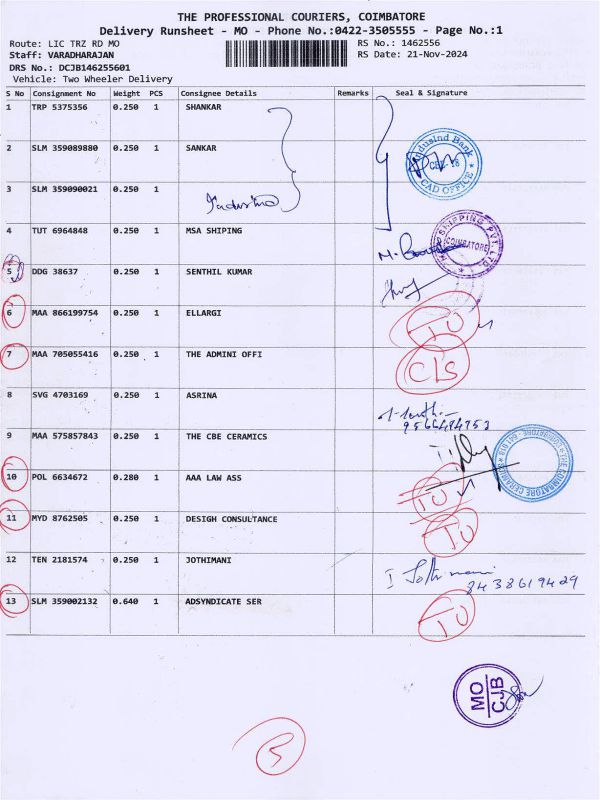 THE PROFESSIONAL COURIERS, COIMBATORE
Delivery Runsheet - MO - Phone No.:0422-3505555 - Page No.:1
Route: LIC TRZ RD MO RS No.: 1462556
Staff: VARADHARAJAN RS Date: 21-Nov-2024
DRS No.: DCJB146255601
Vehicle: Two Wheeler Delivery
S No Consignment No Weight PCS Consignee Details Remarks Seal & Signature
1 TRP 5375356 0.250 1 SHANKAR
2 SLM 359089880 0.250 1 SANKAR
Indusind Bank
CAD OFFICE
3 SLM 359090021 0.250 1
Indusind
4 TUT 6964848 0.250 1 MSA SHIPING
SHIPING PVT. LTD
COIMBATORE
5 DDG 38637 0.250 1 SENTHIL KUMAR
6 MAA 866199754 0.250 1 ELLARGI
7 MAA 705055416 0.250 1 THE ADMINI OFFI
C/S
8 SVG 4703169 0.250 1 ASRINA
9566484753
9 MAA 575857843 0.250 1 THE CBE CERAMICS
10 POL 6634672 0.280 1 AAA LAW ASS
11 MYD 8762505 0.250 1 DESIGH CONSULTANCE
12 TEN 2181574 0.250 1 JOTHIMANI
I Jothimani
8438619429
13 SLM 359002132 0.640 1 ADSYNDICATE SER
MO
CJB